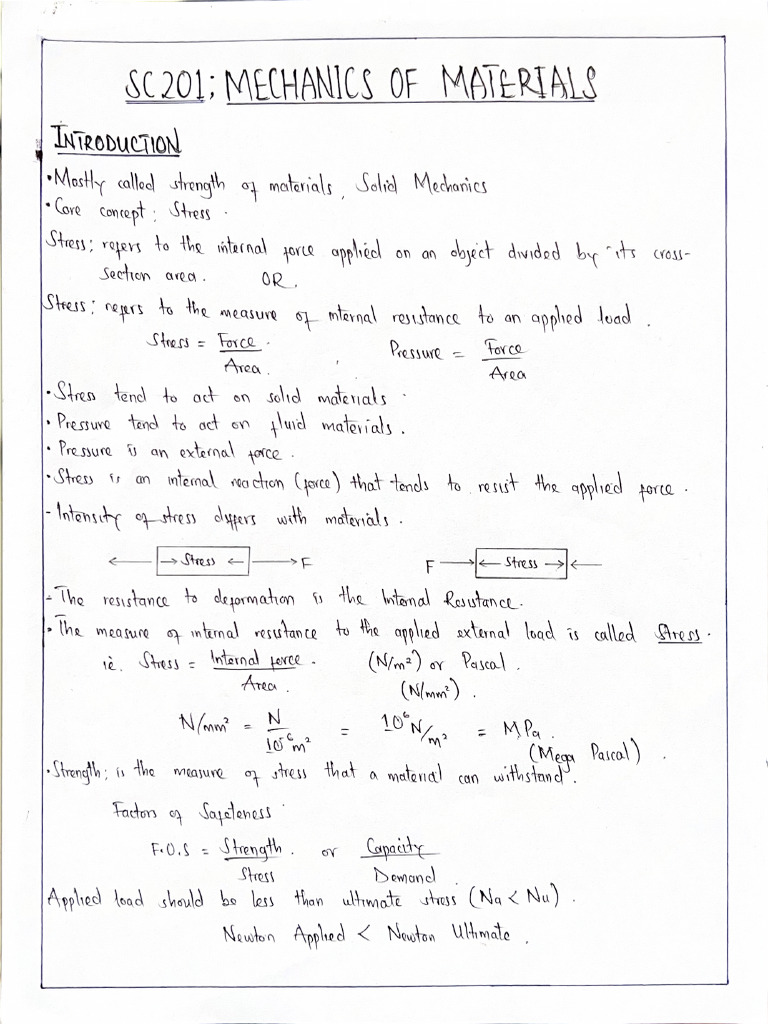 SC201; MECHANICS OF MATERIALS
INTRODUCTION
• Mostly called strength of materials, Solid Mechanics
• Core concept: Stress.
Stress; refers to the internal force applied on an object divided by its cross-
section area. OR.
Stress; refers to the measure of internal resistance to an applied load.
Stress = Force/Area. Pressure = Force/Area
• Stress tend to act on solid materials
• Pressure tend to act on fluid materials.
• Pressure is an external force.
• Stress is an internal reaction (force) that tends to resist the applied force.
- Intensity of stress differs with materials.
← → Stress ← → F F → ← Stress → ←
- The resistance to deformation is the Internal Resistance.
• The measure of internal resistance to the applied external load is called Stress.
ie. Stress = Internal force/Area. (N/m²) or Pascal.
(N/mm²).
N/mm² = N/10⁻⁶m² = 10⁶N/m² = MPa.
(Mega Pascal).
• Strength; is the measure of stress that a material can withstand.
Factors of Safeteness
F.O.S = Strength/Stress. or Capacity/Demand.
Applied load should be less than ultimate stress (Na < Nu).
Newton Applied < Newton Ultimate.